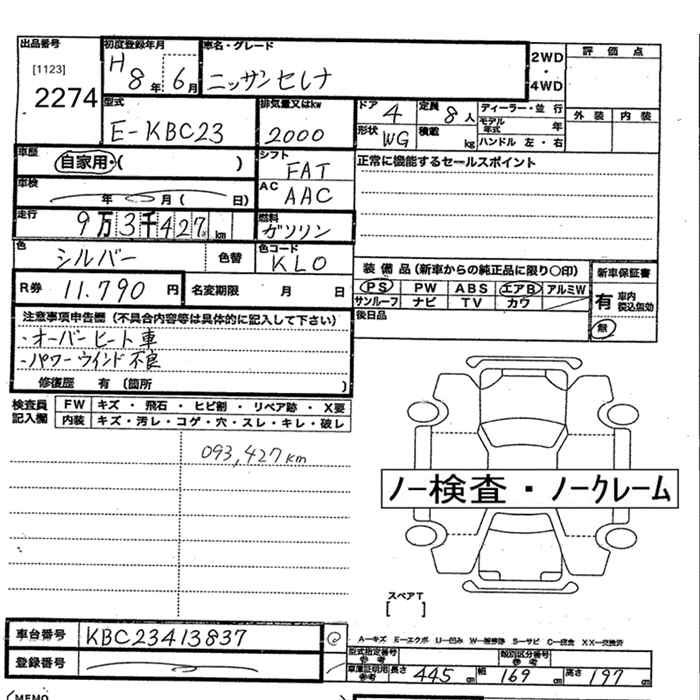 出品番号 初度登録年月 車名・グレード 評価点
[1123] H 8年 6月 ニッサンセレナ 2WD・4WD
2274 外装 内装
型式 排気量又はkw ドア 4 定員 8人 ディーラー・並行
E-KBC23 2000 モデル年式 年
形状 WG 積載 kg ハンドル 左・右
車歴 自家用・( ) シフト FAT 正常に機能するセールスポイント
車検 年 月 ( 日) AC AAC
走行 9万3千427km 燃料 ガソリン
色 シルバー 色替 色コード KLO
装備品(新車からの純正品に限り〇印) 新車保証書
R券 11.790円 名変期限 月 日
PS PW ABS エアB アルミW 有 車内 税込無効
サンルーフ ナビ TV カワ
後日品 無
注意事項申告欄(不具合内容等は具体的に記入して下さい)
・オーバーヒート車
・パワーウインド不良
修復歴 有 (箇所 )
検査員記入欄 FW キズ・飛石・ヒビ割・リペア跡・X要
内装 キズ・汚レ・コゲ・穴・スレ・キレ・破レ
093,427km
ノー検査・ノークレーム
スペアT
[ ]
車台番号 KBC23413837
A―キズ E―エクボ U―凹み S―サビ C―腐食 XX―交換済
型式指定番号 参考 類別区分番号 参考
登録番号 車庫証明用 参考 長さ 445cm 幅 169cm 高さ 197cm
(MEMO